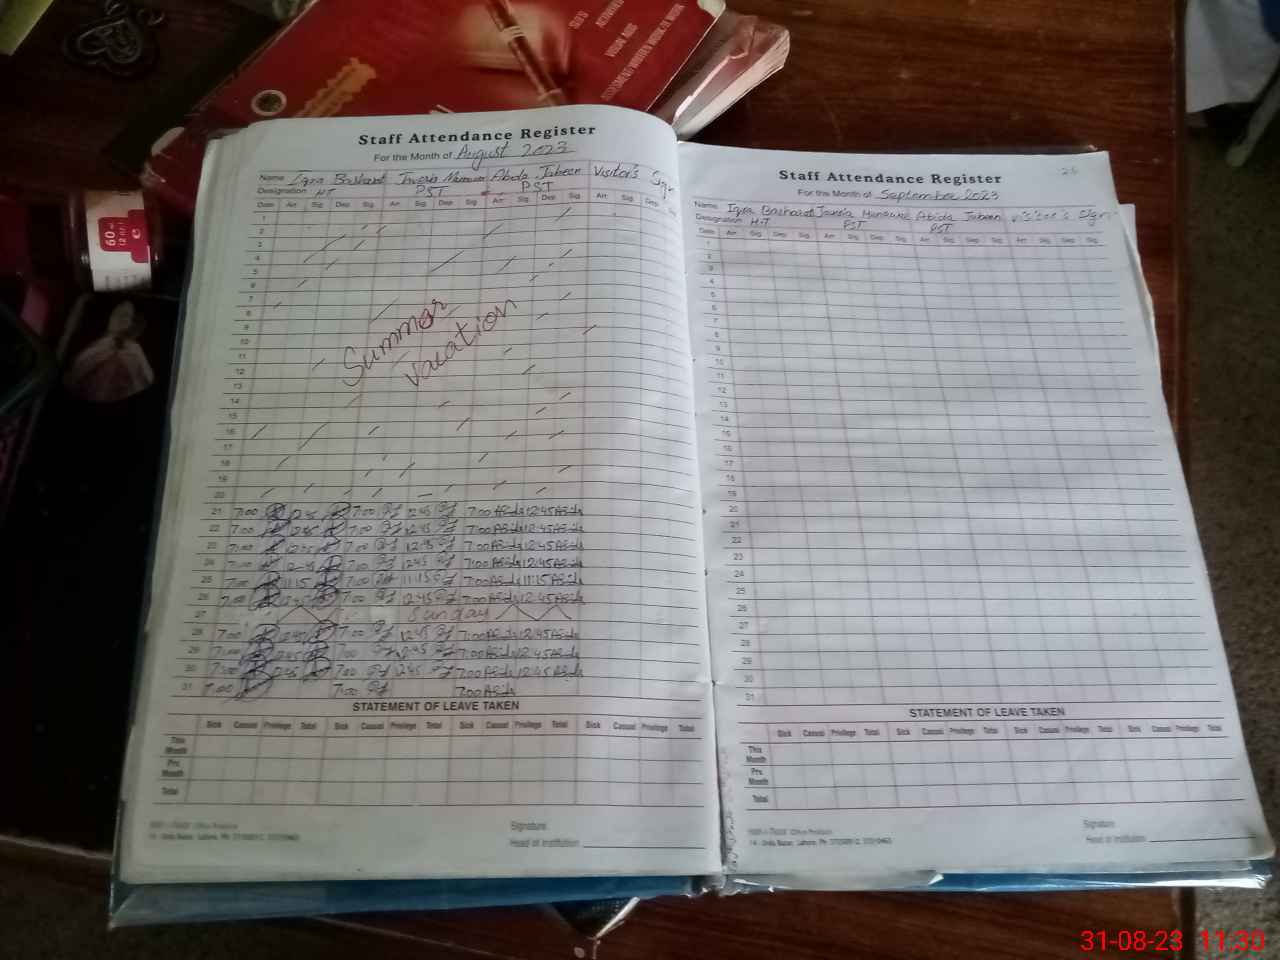 SLO'S
ACTIVITIES
VISUAL AIDS
ASSIGNMENT/WRITTEN WORK/H.WORK
60 ml
Staff Attendance Register
For the Month of August 2023
Name Iqra Basharat Javeria Munawar Abida Jabeen Visitor's Sign
Designation HT PST PST
Date Arr Sig. Dep Sig. Arr Sig. Dep Sig. Arr Sig. Dep Sig. Arr Sig. Dep
1
2
3
4
5
6
7
8
9
10
11
12
13
14
15
16
17
18
19
20
Summer
vacation
21 7:00 12:45 7:00 12:45 7:00 Abida 12:45 Abida
22 7:00 12:45 7:00 12:45 7:00 Abida 12:45 Abida
23 7:00 12:45 7:00 12:45 7:00 Abida 12:45 Abida
24 7:00 12:45 7:00 12:45 7:00 Abida 12:45 Abida
25 7:00 11:15 7:00 11:15 7:00 Abida 11:15 Abida
26 7:00 12:45 7:00 12:45 7:00 Abida 12:45 Abida
27 Sunday
28 7:00 12:45 7:00 12:45 7:00 Abida 12:45 Abida
29 7:00 12:45 7:00 12:45 7:00 Abida 12:45 Abida
30 7:00 12:45 7:00 12:45 7:00 Abida 12:45 Abida
31 7:00 7:00 7:00 Abida
STATEMENT OF LEAVE TAKEN
Sick Casual Privilege Total Sick Casual Privilege Total Sick Casual Privilege Total Sick Casual Privilege Total
This Month
Prv. Month
Total
Signature
Head of Institution
Office Products
14 - Urdu Bazar, Lahore. Ph:
Staff Attendance Register
For the Month of September 2023
Name Iqra Basharat Javeria Munawar Abida Jabeen Visitor's Sign
Designation H.T PST PST
Date Arr Sig. Dep Sig. Arr Sig. Dep Sig. Arr Sig. Dep Sig. Arr Sig. Dep Sig.
1
2
3
4
5
6
7
8
9
10
11
12
13
14
15
16
17
18
19
20
21
22
23
24
25
26
27
28
29
30
31
STATEMENT OF LEAVE TAKEN
Sick Casual Privilege Total Sick Casual Privilege Total Sick Casual Privilege Total Sick Casual Privilege Total
This Month
Prv. Month
Total
Signature
Head of Institution
Office Products
14 - Urdu Bazar, Lahore. Ph:
31-08-23 11:30